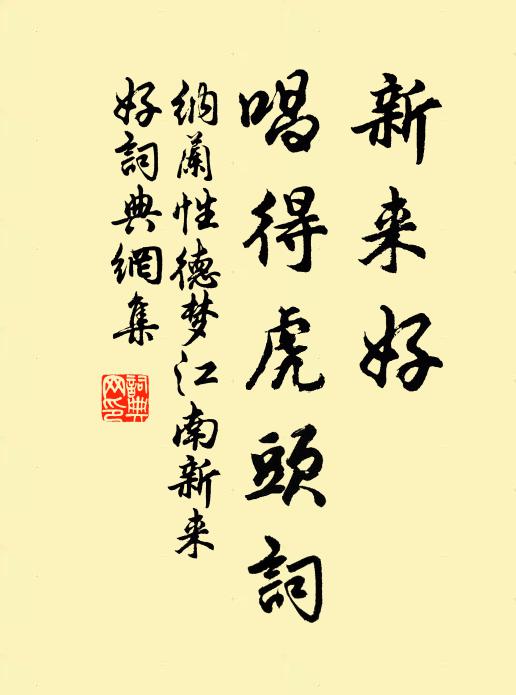 新来好
唱得虎頭詞
納蘭性德梦江南新来
好詞典網集
詞典
网印